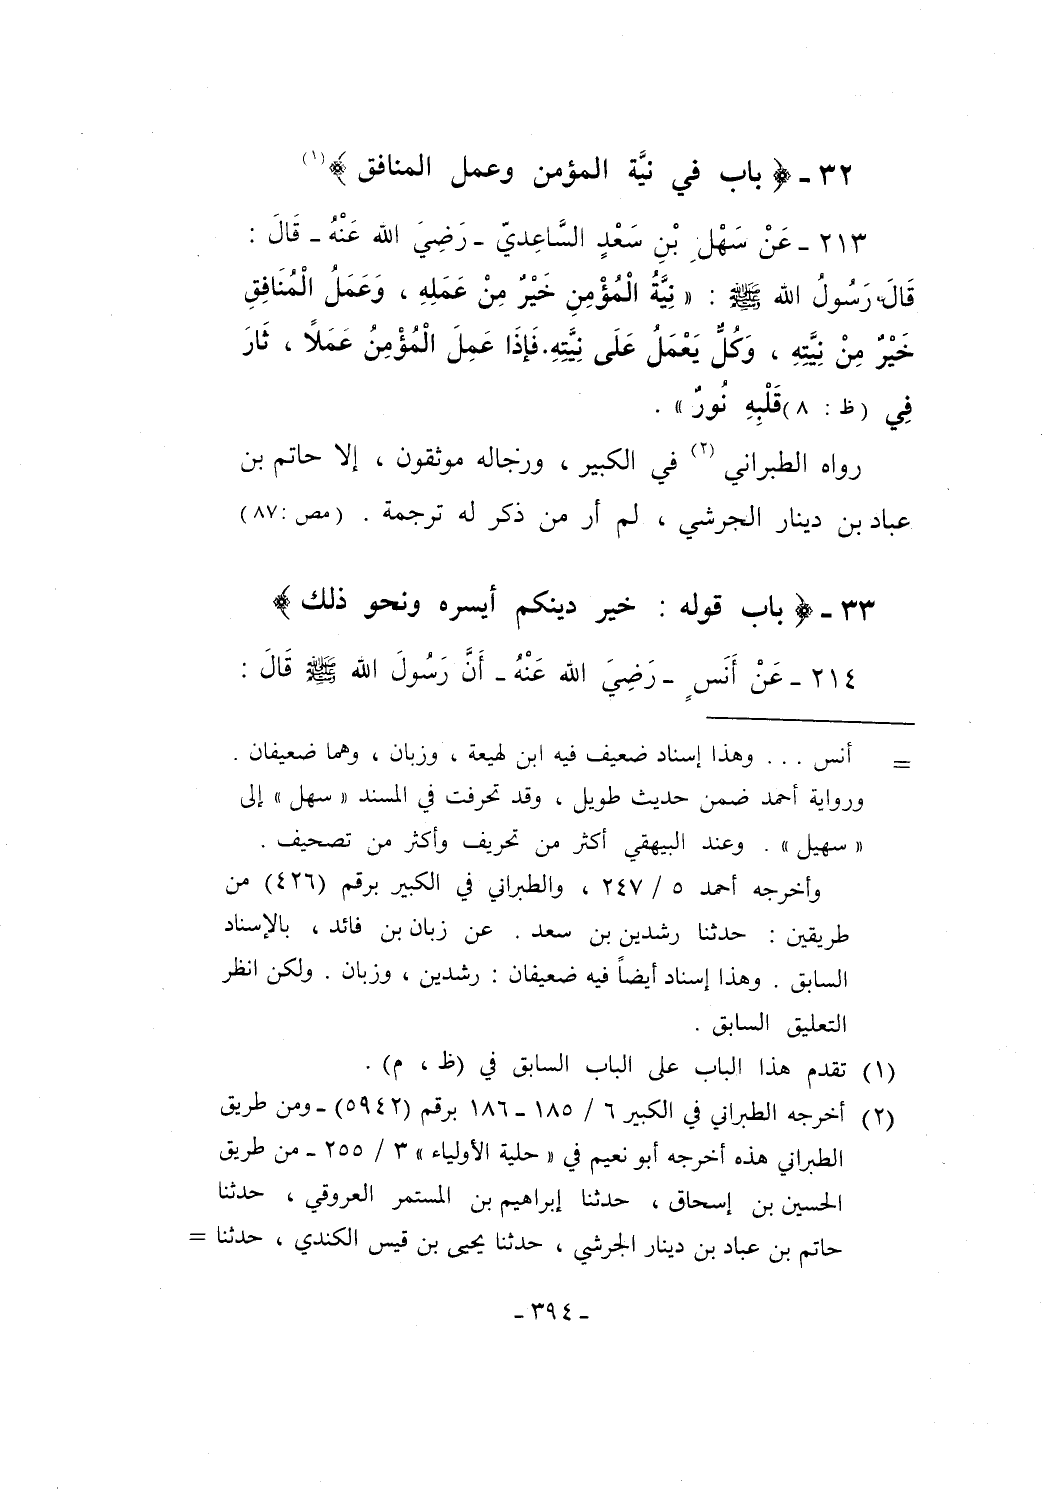 ٣٢ ـ ﴿ باب في نيَّة المؤمن وعمل المنافق ﴾(١)
٢١٣ ـ عَنْ سَهْلِ بْنِ سَعْدٍ السَّاعِدِيّ ـ رَضِيَ الله عَنْهُ ـ قَالَ :
قَالَ رَسُولُ الله ﷺ : « نِيَّةُ الْمُؤْمِنِ خَيْرٌ مِنْ عَمَلِهِ ، وَعَمَلُ الْمُنَافِقِ
خَيْرٌ مِنْ نِيَّتِهِ ، وَكُلٌّ يَعْمَلُ عَلَى نِيَّتِهِ. فَإِذَا عَمِلَ الْمُؤْمِنُ عَمَلاً ، ثَارَ
فِي (ظ : ٨) قَلْبِهِ نُورٌ » .
رواه الطبراني (٢) في الكبير ، ورجاله موثقون ، إلا حاتم بن
عباد بن دينار الجرشي ، لم أر من ذكر له ترجمة . (مص : ٨٧)
٣٣ ـ ﴿ باب قوله : خير دينكم أيسره ونحو ذلك ﴾
٢١٤ ـ عَنْ أَنَسٍ ـ رَضِيَ الله عَنْهُ ـ أَنَّ رَسُولَ الله ﷺ قَالَ :
= أنس . . . وهذا إسناد ضعيف فيه ابن لهيعة ، وزبان ، وهما ضعيفان .
ورواية أحمد ضمن حديث طويل ، وقد تحرفت في المسند « سهل » إلى
« سهيل » . وعند البيهقي أكثر من تحريف وأكثر من تصحيف .
وأخرجه أحمد ٥ / ٢٤٧ ، والطبراني في الكبير برقم (٤٢٦) من
طريقين : حدثنا رشدين بن سعد . عن زبان بن فائد ، بالإسناد
السابق . وهذا إسناد أيضاً فيه ضعيفان : رشدين ، وزبان . ولكن انظر
التعليق السابق .
(١) تقدم هذا الباب على الباب السابق في (ظ ، م) .
(٢) أخرجه الطبراني في الكبير ٦ / ١٨٥ ـ ١٨٦ برقم (٥٩٤٢) ـ ومن طريق
الطبراني هذه أخرجه أبو نعيم في « حلية الأولياء » ٣ / ٢٥٥ ـ من طريق
الحسين بن إسحاق ، حدثنا إبراهيم بن المستمر العروقي ، حدثنا
حاتم بن عباد بن دينار الجرشي ، حدثنا يحيى بن قيس الكندي ، حدثنا =
ـ ٣٩٤ ـ